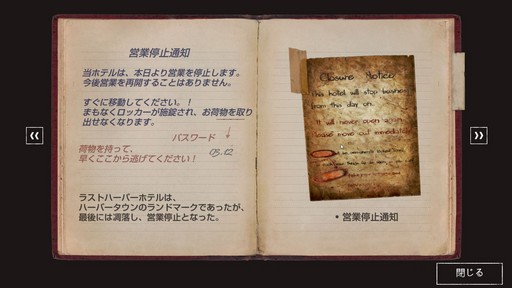 営業停止通知
当ホテルは、本日より営業を停止します。
今後営業を再開することはありません。
すぐに移動してください。！
まもなくロッカーが施錠され、お荷物を取り
出せなくなります。
パスワード
荷物を持って、
早くここから逃げてください！
05.02
ラストハーバーホテルは、
ハーバータウンのランドマークであったが、
最後には凋落し、営業停止となった。
Closure Notice
This hotel will stop business
from this day on.
It will never open again.
Please move out immediately!
• 営業停止通知
閉じる